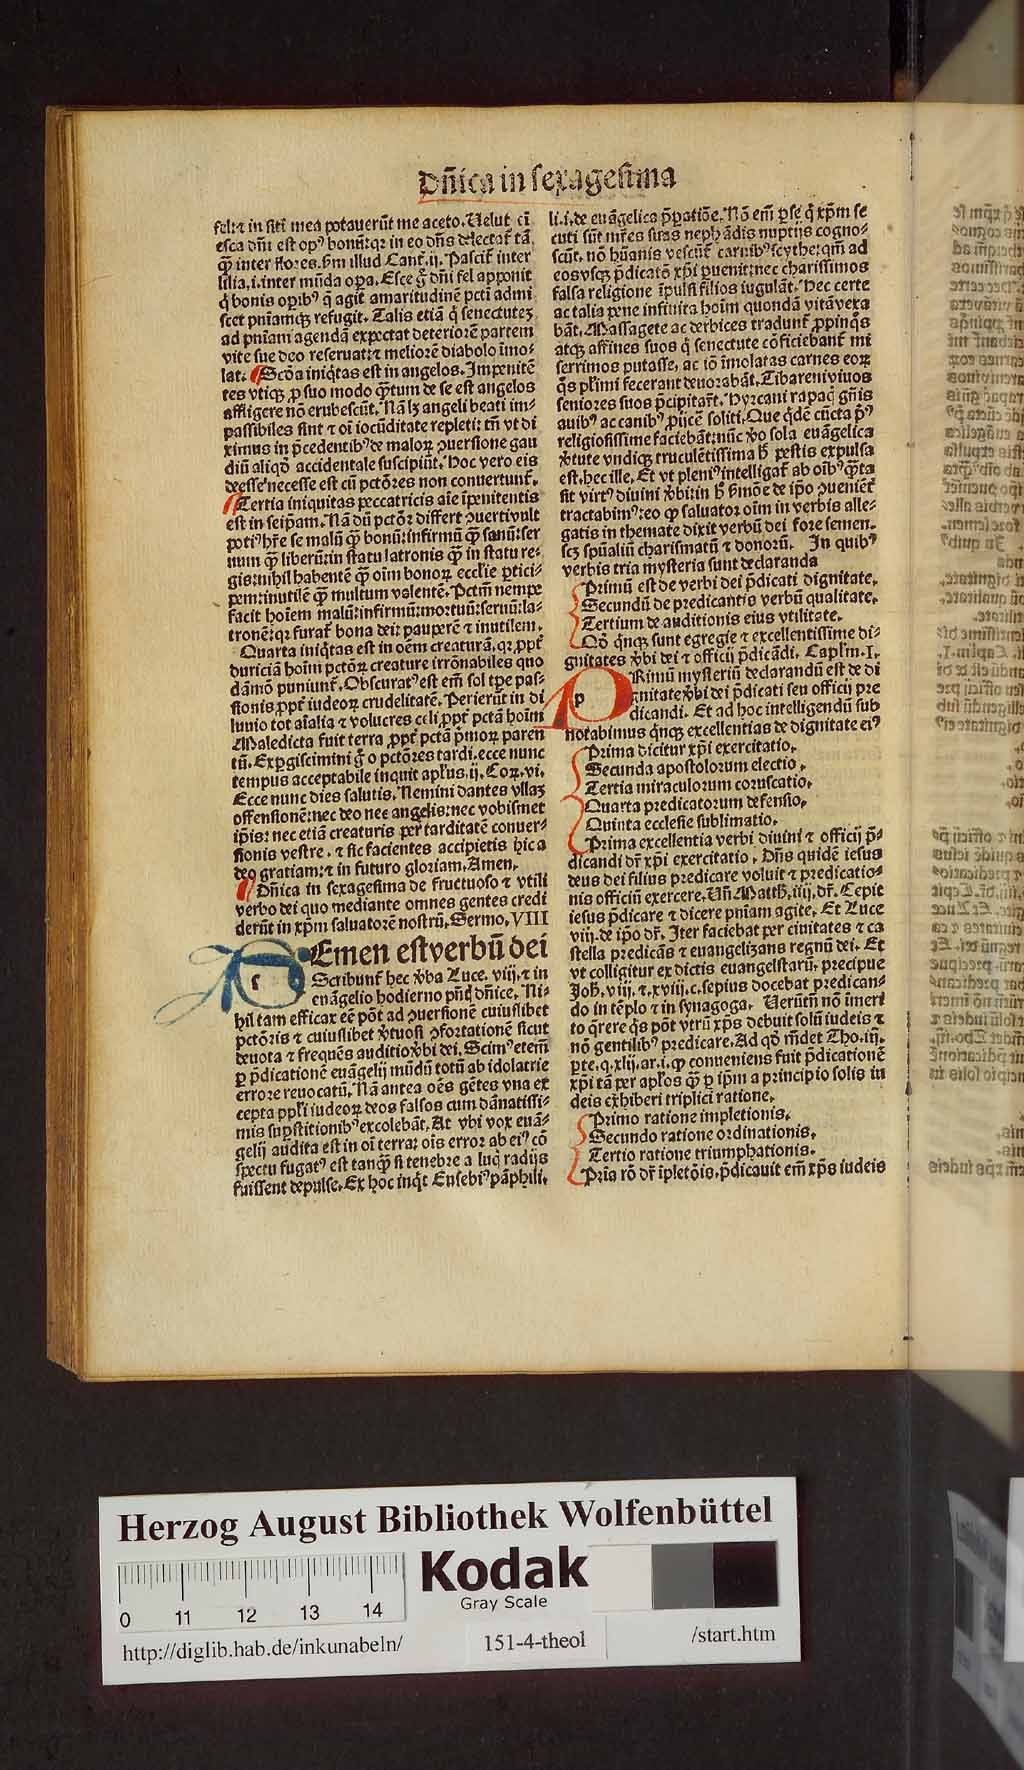 Dn̄ica in sexagesima
fel: ⁊ in siti mea potauerūt me aceto. Uelut em̄
esca dn̄i est opꝰ bonū: qꝛ in eo dn̄s delectat᷑ tā
qꝫ inter flores. ẜm illud Cant᷑. ij. Pascit᷑ inter
lilia. i. inter mūda opa. Esce g̊ dn̄i fel apponit
q̇ bonis opibꝰ q̄ agit amaritudinē pctī admi
scet pn̄iamqꝫ refugit. Talis etiā q̇ senectutez
ad pn̄iam agendā expectat deteriorē partem
vite sue deo reseruat: ⁊ meliorē diabolo īmo-
lat. Scd̄a iniq̇tas est in angelos. Impenitē
tes vtiqꝫ ꝓ suo modo q̄tum de se est angelos
affligere nō erubescūt. Nā lꝫ angeli beati im-
passibiles sint ⁊ oī iocūditate repleti: tn̄ vt di
ximus in p̄cedentibꝰ de maloꝝ ꝯuersione gau
diū aliqd̄ accidentale suscipiūt. Hoc vero eis
deesse necesse est cū pctōres non conuertunt᷑.
Tertia iniquitas peccatricis aīe īpenitentis
est in seip̄am. Nā dū pctōꝛ differt ꝯuerti vult
potiꝰ hr̄e se malū qꝫ bonū: infirmū qꝫ sanū: ser
uum qꝫ liberū: in statu latronis qꝫ in statu re-
gis: nihil habentē qꝫ oīm bonoꝝ eccl̄ie ꝑtici-
pem: inutilē qꝫ multum valentē. Pctm̄ nempe
facit hoīem malū: infirmū: mortuū: seruū: la-
tronē: qꝛ furat᷑ bona dei: pauperē ⁊ inutilem.
Quarta iniq̇tas est in oēm creaturā. qꝛ ꝓpt᷑
duriciā hoīm pctōꝝ creature irrōnabiles quo
dāmō puniunt᷑. Obscuratꝰ est em̄ sol tp̄e pas-
sionis ꝓpt᷑ iudeoꝝ crudelitatē. Perierūt in di
luuio tot aīalia ⁊ volucres celi ꝓpt᷑ pctā hoīm
Maledicta fuit terra ꝓpt᷑ pctā p̄moꝝ paren
tū. Expgiscimini g̊ o pctōres tardi. ecce nunc
tempus acceptabile inquit apl̄us. ij. Coꝝ. vi.
Ecce nunc dies salutis. Nemini dantes vllaꝫ
offensionē: nec deo nec angelis: nec vobismet
ip̄is: nec etiā creaturis per tarditatē conuer-
sionis vestre. ⁊ sic facientes accipietis hic a
deo gratiam: ⁊ in futuro gloriam. Amen.
Dn̄ica in sexagesima de fructuoso ⁊ vtili
verbo dei quo mediante omnes gentes credi
derūt in xp̄m saluatorē nostrū. Sermo. VIII
SEmen est verbū dei
Scribunt᷑ hec v̄ba Luce. viij. ⁊ in
euāgelio hodierno pn̄tis dn̄ice. Ni-
hil tam efficax eē pōt ad ꝯuersionē cuiuslibet
pctōris ⁊ cuiuslibet v̄tuosi ꝯfortationē sicut
deuota ⁊ frequēs auditio v̄bi dei. Scimꝰ etem̄
ꝑ p̄dicationē euāgelij mūdū totū ab idolatrie
errore reuocatū. Nā antea oēs gētes vna ex
cepta ppl̄i iudeoꝝ deos falsos cum dānatissi-
mis suꝑstitionibꝰ excolebāt. At vbi vox euā-
gelij audita est in oī terra: oīs error ab eiꝰ cō
spectu fugatꝰ est tanqꝫ si tenebre a lucꝭ radijs
fuissent depulse. Ex hoc inq̇t Eusebiꝰ pāphili.
li. i. de euāgelica p̄ꝑatiōe. Nō em̄ ꝑ se q̇ xp̄m se
cuti sūt mr̄es suas nephādis nuptijs cogno-
scūt. nō hūanis vescūt᷑ carnibꝰ scythe: qm̄ ad
eos vsqꝫ p̄dicatō xp̄i puenit: nec charissimos
falsa religione īpulsi filios iugulāt. Hec certe
ac talia pene infinita hoīm quondā vitā vexa
bāt. Massagete ac derbices tradunt᷑ ꝓpinq̊s
atqꝫ affines suos q̇ senectute cōficiebant᷑ mi
serrimos putasse. ac iō īmolatas carnes eoꝝ
q̊s pl̄imi fecerant deuorabāt. Tibareni viuos
seniores suos p̄cipitar̄t. Hyrcani rapaci gn̄is
auibꝰ ac canibꝰ ꝓijcē soliti. Que qdē cūcta pꝰ
religiosissime faciebāt: nūc v̊o sola euāgelica
v̄tute vndiqꝫ truculētissima h̄ pestis expulsa
est. hec ille. Et vt pleniꝰ intelligat᷑ ab oībꝰ q̄ta
sit virtꝰ diuini v̄bi: in h̄ ẜmōe de ip̄o ꝯuenient᷑
tractabimꝰ: eo qꝫ saluator oīm in verbis alle-
gatis in themate dixit verbū dei fore semen.
scꝫ spūaliū charismatū ⁊ donorū. In quibꝰ
verbis tria mysteria sunt declaranda
Primū est de verbi dei p̄dicati dignitate.
Secundū de predicantis verbū qualitate.
Tertium de auditionis eius vtilitate.
Qd̄ q̇nqꝫ sunt egregie ⁊ excellentissime di-
gnitates v̄bi dei ⁊ officij p̄dicādi. Capl̄m. I.
PRimū mysteriū declarandū est de di
gnitate v̄bi dei p̄dicati seu officij pre
dicandi. Et ad hoc intelligendū sub
notabimus q̇nqꝫ excellentias de dignitate eiꝰ
Prima dicitur xp̄i exercitatio.
Secunda apostolorum electio.
Tertia miraculorum coruscatio.
Quarta predicatorum defensio.
Quinta ecclesie sublimatio.
Prima excellentia verbi diuini ⁊ officij p̄-
dicandi dr̄ xp̄i exercitatio. Dn̄s quidē iesus
deus dei filius predicare voluit ⁊ predicatio-
nis officiū exercere. Un̄ Matth. iiij. dr̄. Cepit
iesus p̄dicare ⁊ dicere pn̄iam agite. Et Luce
viij. de ip̄o dr̄. Iter faciebat per ciuitates ⁊ ca
stella predicās ⁊ euangelizans regnū dei. Et
vt colligitur ex dictis euangelistarū. precipue
Joh̄. viij. ⁊. xviij. c. sepius docebat predican-
do in tēplo ⁊ in synagoga. Uerūtn̄ nō īmeri
to q̄rere q̊s pōt vtrū xp̄s debuit solū iudeis ⁊
nō gentilibꝰ predicare. Ad qd̄ rn̄det Tho. iij.
pte. q. xlij. ar. i. qꝫ conueniens fuit p̄dicationē
xp̄i tā per apl̄os qꝫ ꝑ ip̄m a principio solis iu
deis exhiberi triplici ratione.
Primo ratione impletionis.
Secundo ratione ordinationis.
Tertio ratione triumphationis.
Pria rō dr̄ īpletōis. p̄dicauit em̄ xp̄s iudeis
Herzog August Bibliothek Wolfenbüttel
Kodak
Gray Scale
0 11 12 13 14
http://diglib.hab.de/inkunabeln/
151-4-theol
/start.htm